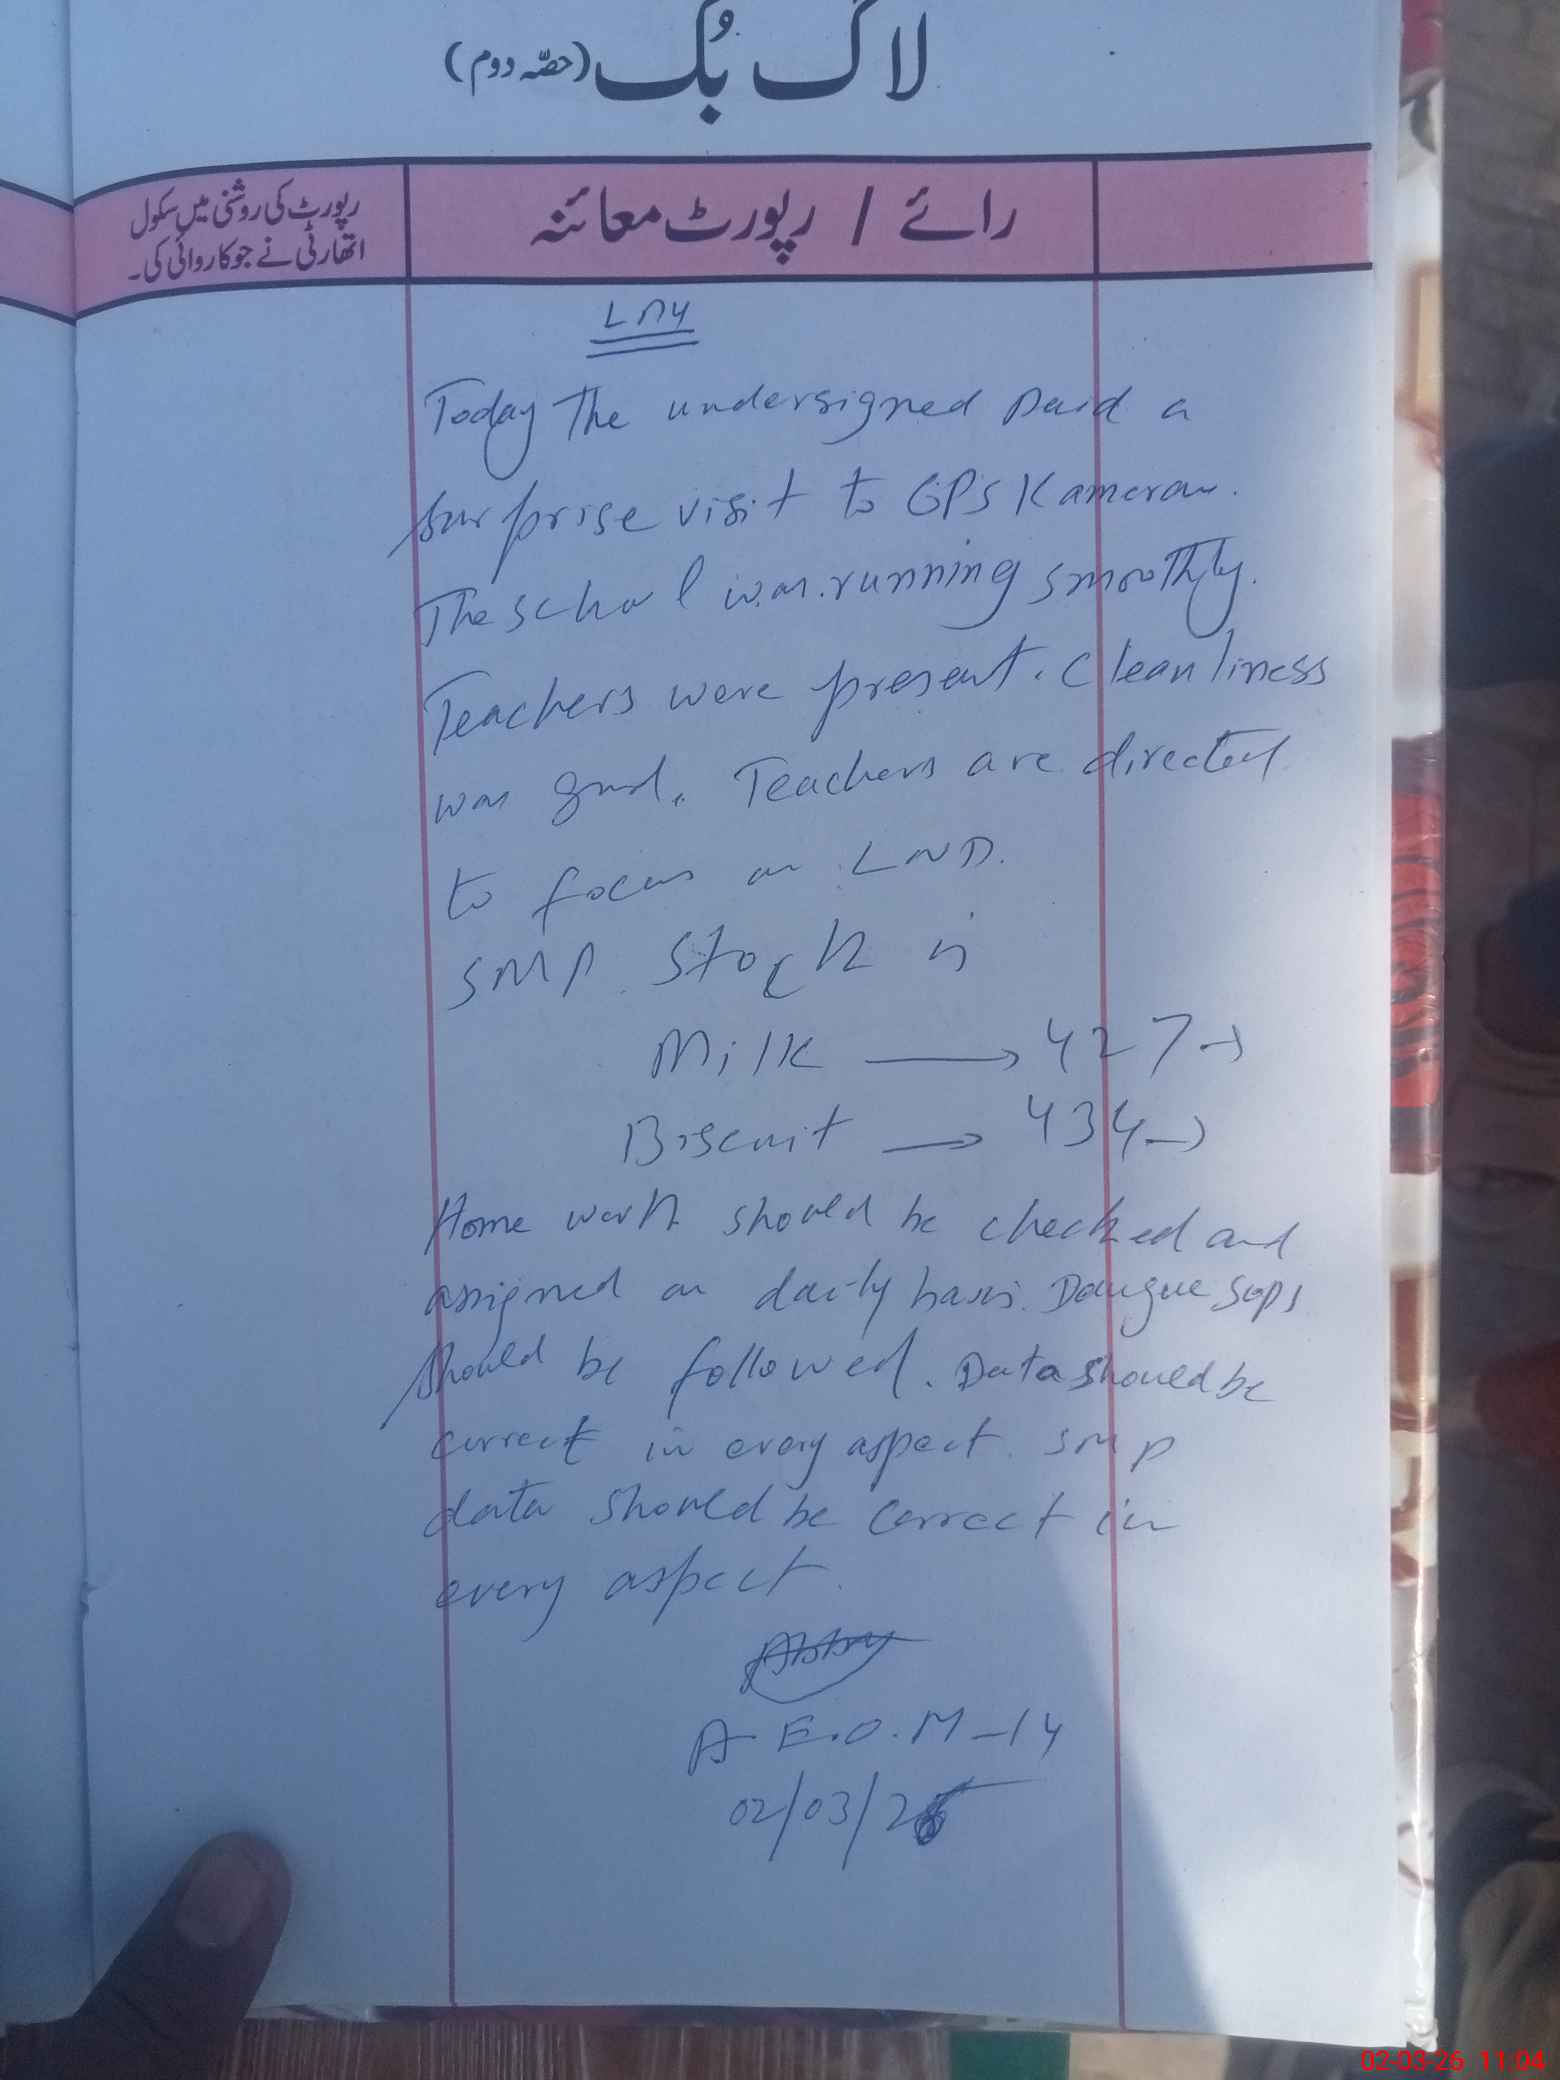 لاگ بُک (حصّہ دوم)
رائے / رپورٹ معائنہ
رپورٹ کی روشنی میں سکول
اتھارٹی نے جو کاروائی کی۔
Today The undersigned paid a
surprise visit to GPS Kameran.
The school was running smoothly.
Teachers were present. Cleanliness
was good. Teachers are directed
to focus on LND.
SMP Stock is
Milk → 427
Biscuit → 434
Home work should be checked and
assigned on daily basis. Dangue Sops
should be followed. Data should be
correct in every aspect. SMP
data should be correct in
every aspect.
A.E.O.M-14
02/03/26
02-03-26 11:04